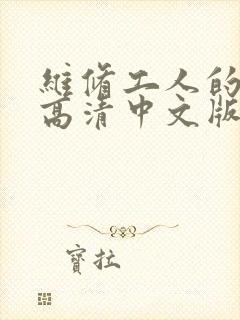 維修工人的
高清中文版
寶拉